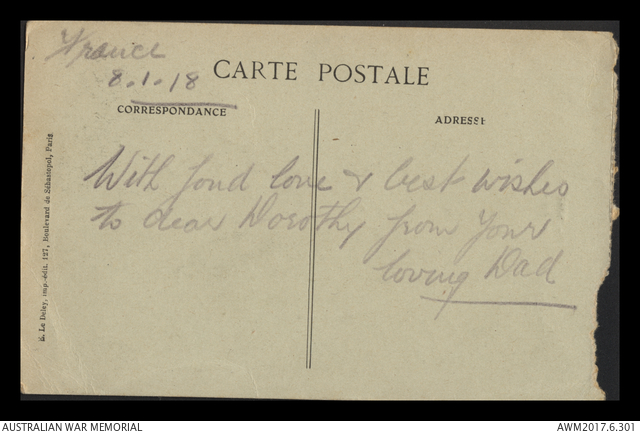 France
8.1.18
CARTE POSTALE
CORRESPONDANCE
ADRESSE
With fond love & best wishes
to dear Dorothy from your
loving Dad
E. Le Deley, imp.-édit. 127, Boulevard de Sébastopol, Paris
AUSTRALIAN WAR MEMORIAL
AWM2017.6.301